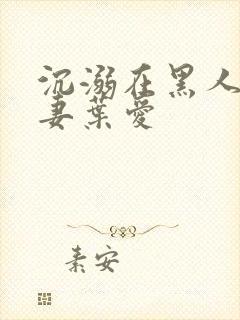 沉溺在黑人
妻葉愛
素安